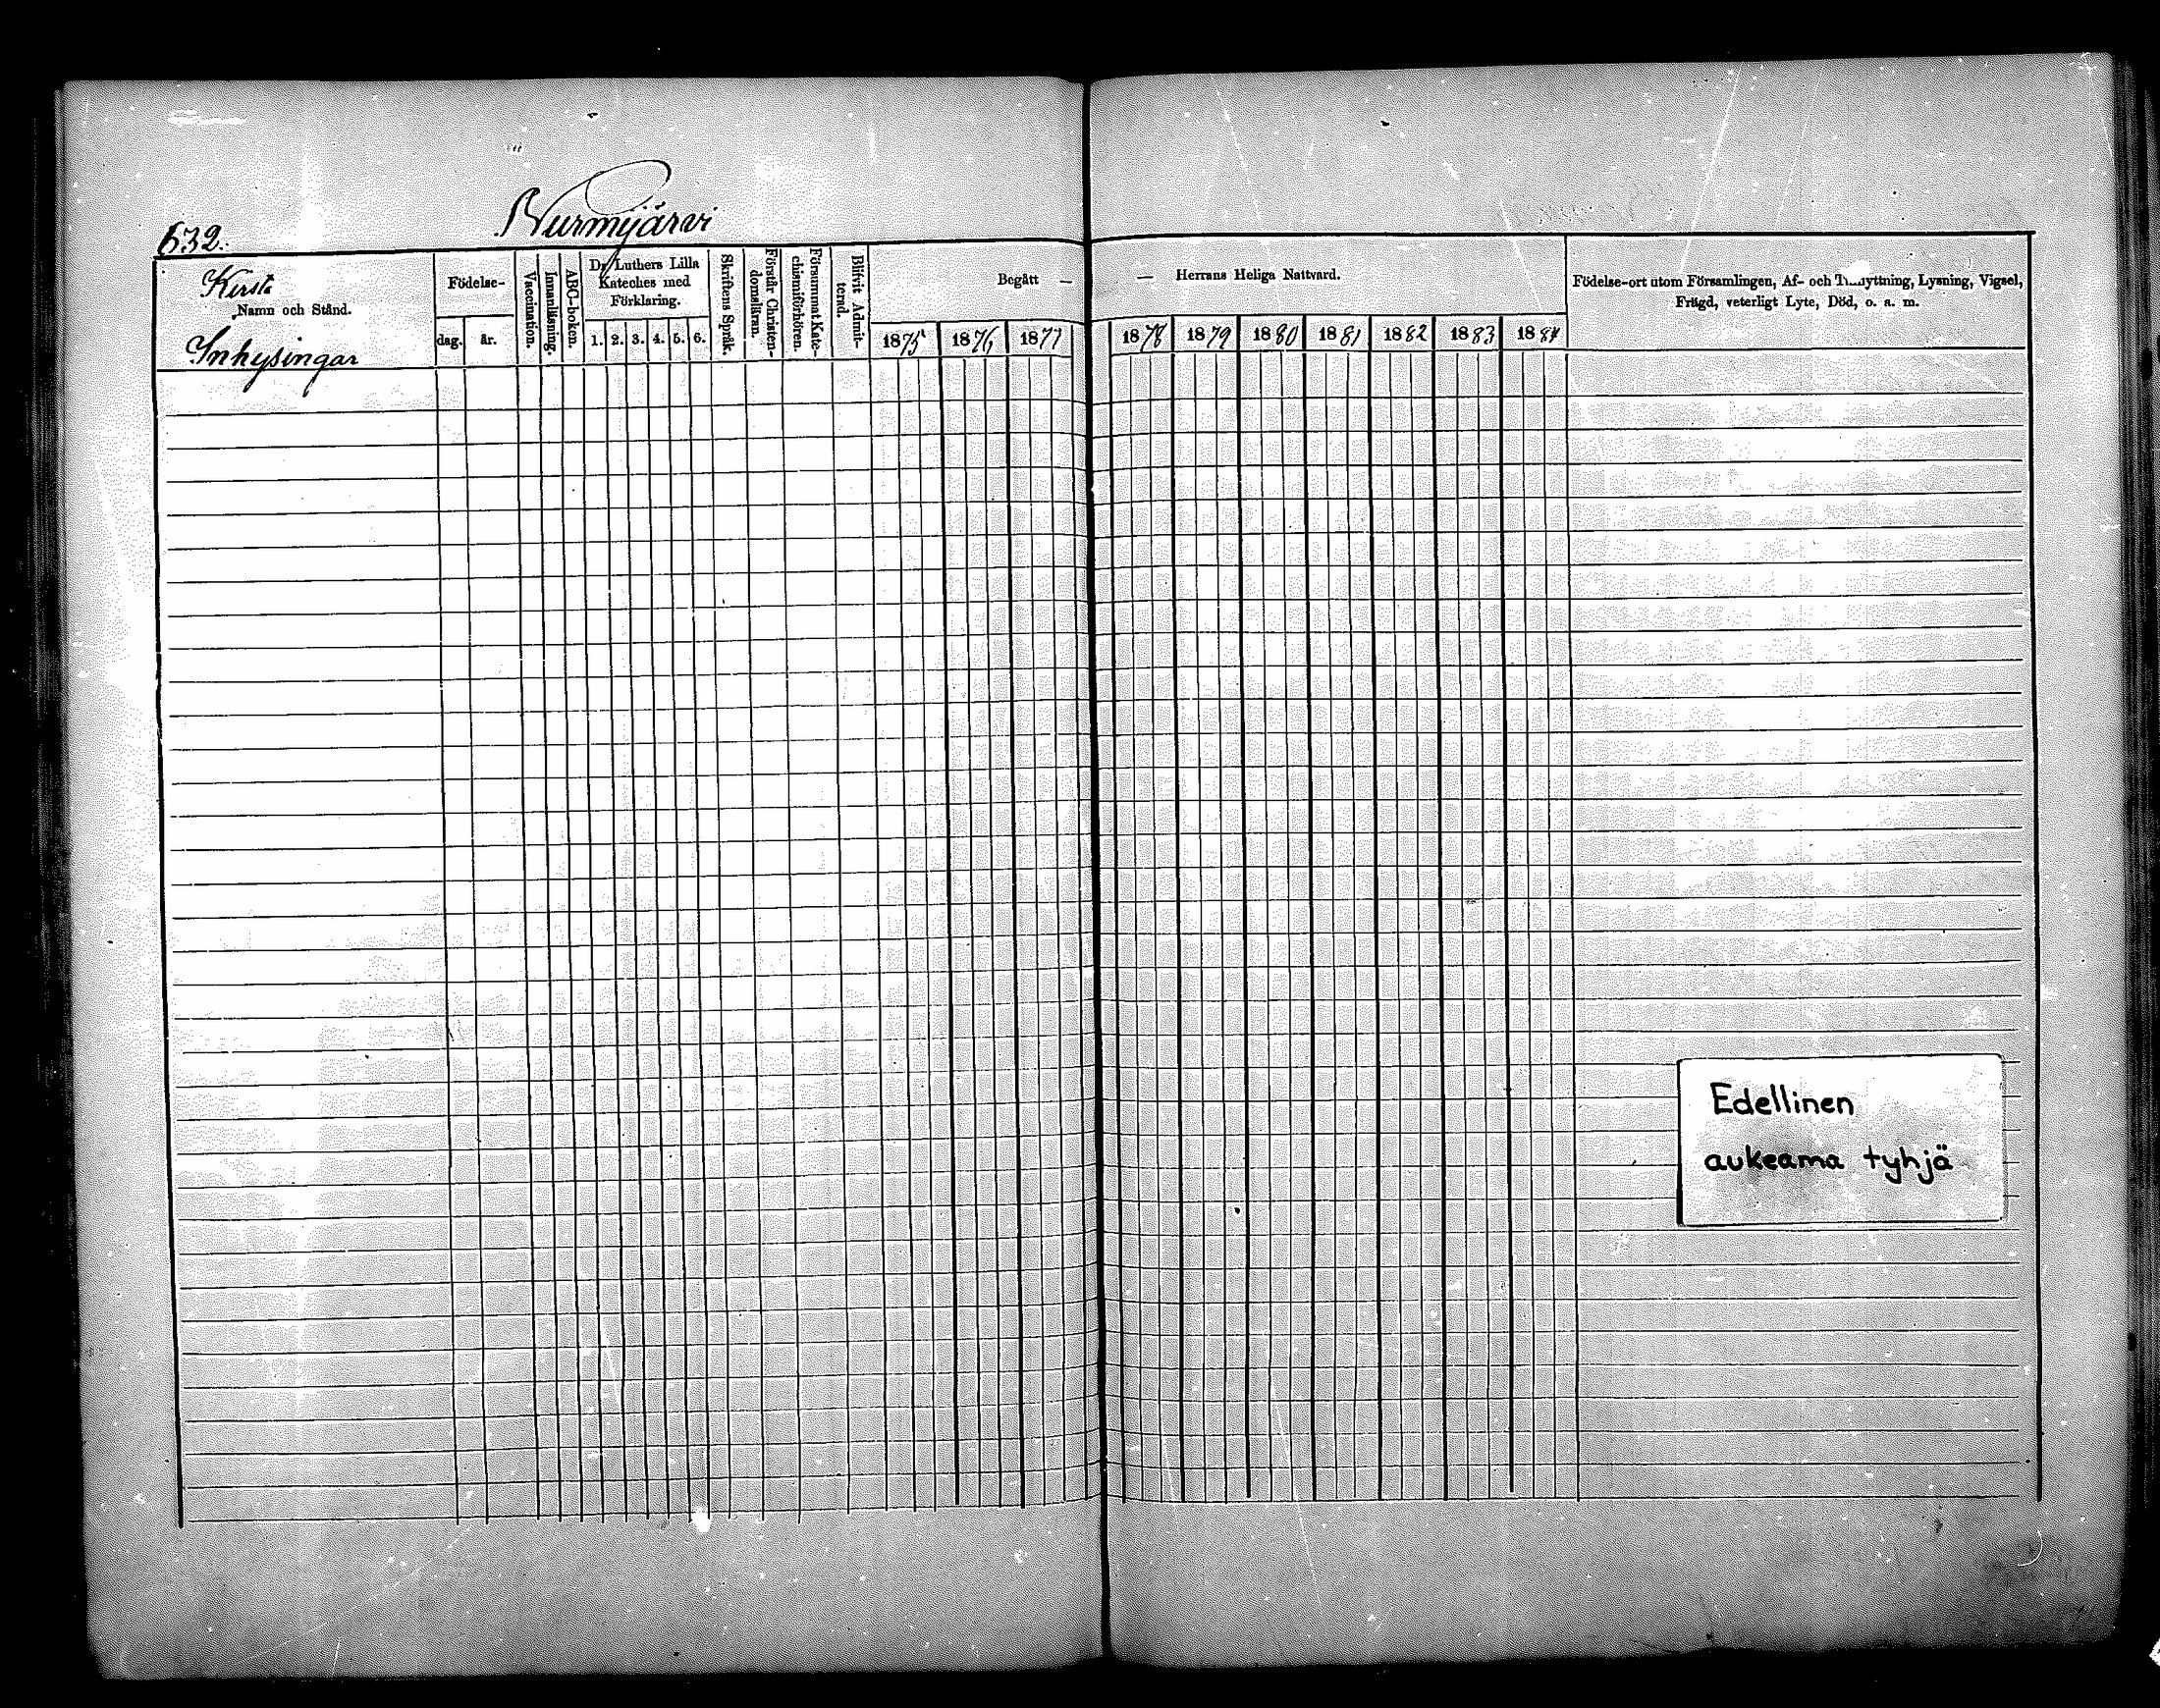 632.
Nurmijärvi
Kirsti
Namn och Stånd.
Inhysingar
Födelse-
dag.
år.
Vaccination.
Innanläsning.
ABC-boken.
Dr Luthers Lilla
Kateches med
Förklaring.
1. 2. 3. 4. 5. 6.
Skriftens Språk.
Förstår Christen-
domsläran.
Försummat Kate-
chismiförhören.
Blifvit Admit-
terad.
Begått —
1875 1876 1877
— Herrans Heliga Nattvard.
1878 1879 1880 1881 1882 1883 1884
Födelse-ort utom Församlingen, Af- och Tillflyttning, Lysning, Vigsel,
Frägd, veterligt Lyte, Död, o. s. m.
Edellinen
aukeama tyhjä